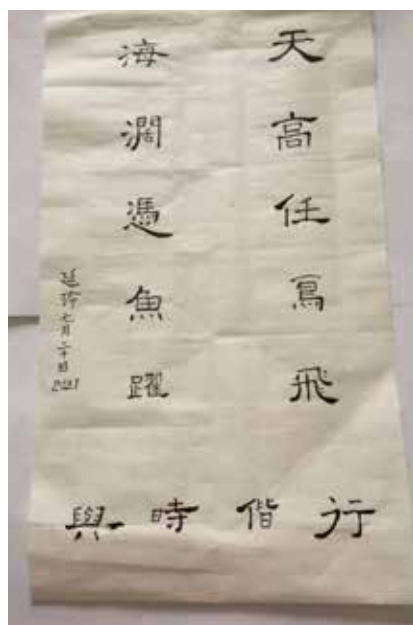 天高任鳥飛
海濶憑魚躍
延玲七月二十日
2021
與時偕行